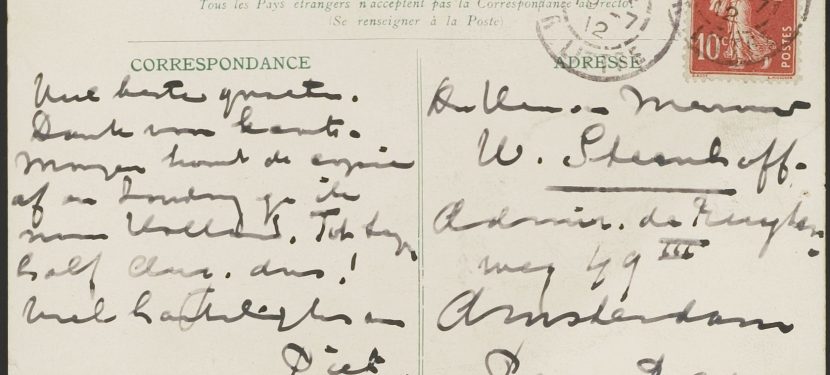 Tous les Pays étrangers n'acceptent pas la Correspondance au recto.
(Se renseigner à la Poste)
CORRESPONDANCE
Veel beste groeten.
Dank voor kaart.
Morgen komt de copie
af en Zondag ga ik
naar Holland. Tot begin
half Aug. dus!
Veel hartelijks en
Piet
ADRESSE
Den Heer en Mevrouw
W. Steenhoff.
Admir. de Ruyter
weg 49 III
Amsterdam
12
7
10c
POSTES